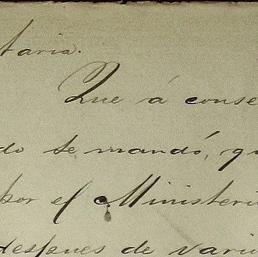 taria.
Que á conse
do se mandó, qu
por el Ministeri
despues de vari